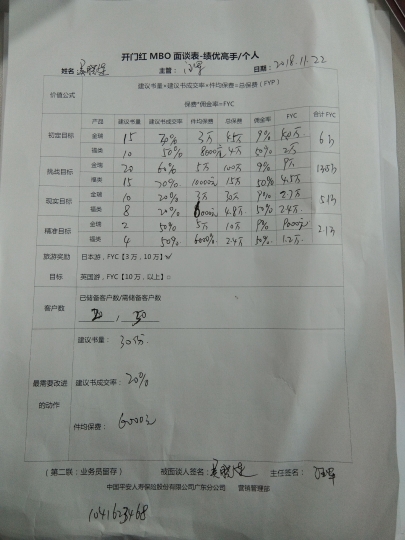 开门红 MBO 面谈表-绩优高手/个人
姓名： 主管： 日期：2018.11.22
价值公式
建议书量*建议书成交率*件均保费=总保费（FYP）
保费*佣金率=FYC
产品 建议书量 建议书成交率 件均保费 总保费 佣金率 FYC 合计 FYC
初定目标 金瑞 15 20% 3万 45万 9% 4.0万 6万
福类 10 50% 8000元 4万 50% 2万
挑战目标 金瑞 20 60% 5万 100万 9% 9万 13.5万
福类 15 20% 10000元 15万 50% 4.5万
现实目标 金瑞 10 20% 3万 30万 9% 2.7万 5.1万
福类 8 20% 6000元 4.8万 50% 2.4万
隔准目标 金瑞 2 50% 5万 10万 9% 9000元 2.1万
福类 4 50% 6000元 2.4万 50% 1.2万
旅游奖励 日本游，FYC【3 万，10 万】√
目标 英国游，FYC【10 万，以上】□
客户数
已储备客户数/需储备客户数
20 / 30
最需要改进的动作
建议书量：30份
建议书成交率：20%
件均保费：6000元
（第二联：业务员留存） 被面谈人签名： 主任签名：
中国平安人寿保险股份有限公司广东分公司 营销管理部
1041623468